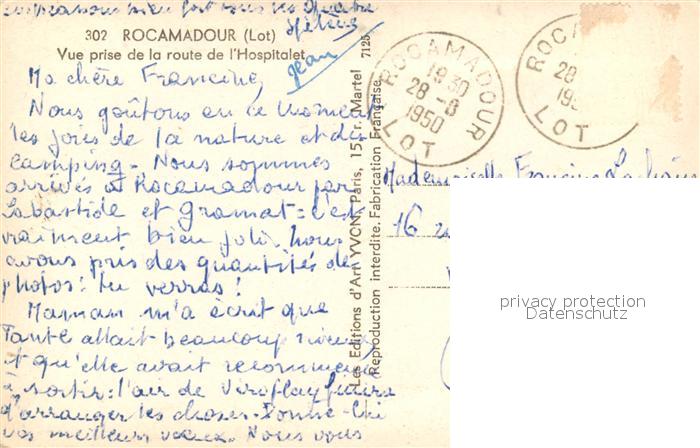 embrassons bien fort tous les quatre
Hélène
Jean
302 ROCAMADOUR (Lot)
Vue prise de la route de l'Hospitalet
Ma chère Francine,
Nous goûtons en ce moment
les joies de la nature et du
camping. Nous sommes
arrivés à Rocamadour par
Labastide et Gramat = c'est
vraiment bien joli. Nous
avons pris des quantités de
photos! tu verras!
Maman m'a écrit que
Tante allait beaucoup mieux
et qu'elle avait recommencé
à sortir: l'air de Viroflay finira
d'arranger les choses. Donne-lui
nos meilleurs vœux. Nous vous
7125
Les Editions d'Art YVON, Paris, 15, r. Martel
Reproduction interdite. Fabrication Française
ROCAMADOUR
1930
28-8
1950
LOT
ROCA
28
195
LOT
Mademoiselle Francine
16
privacy protection
Datenschutz